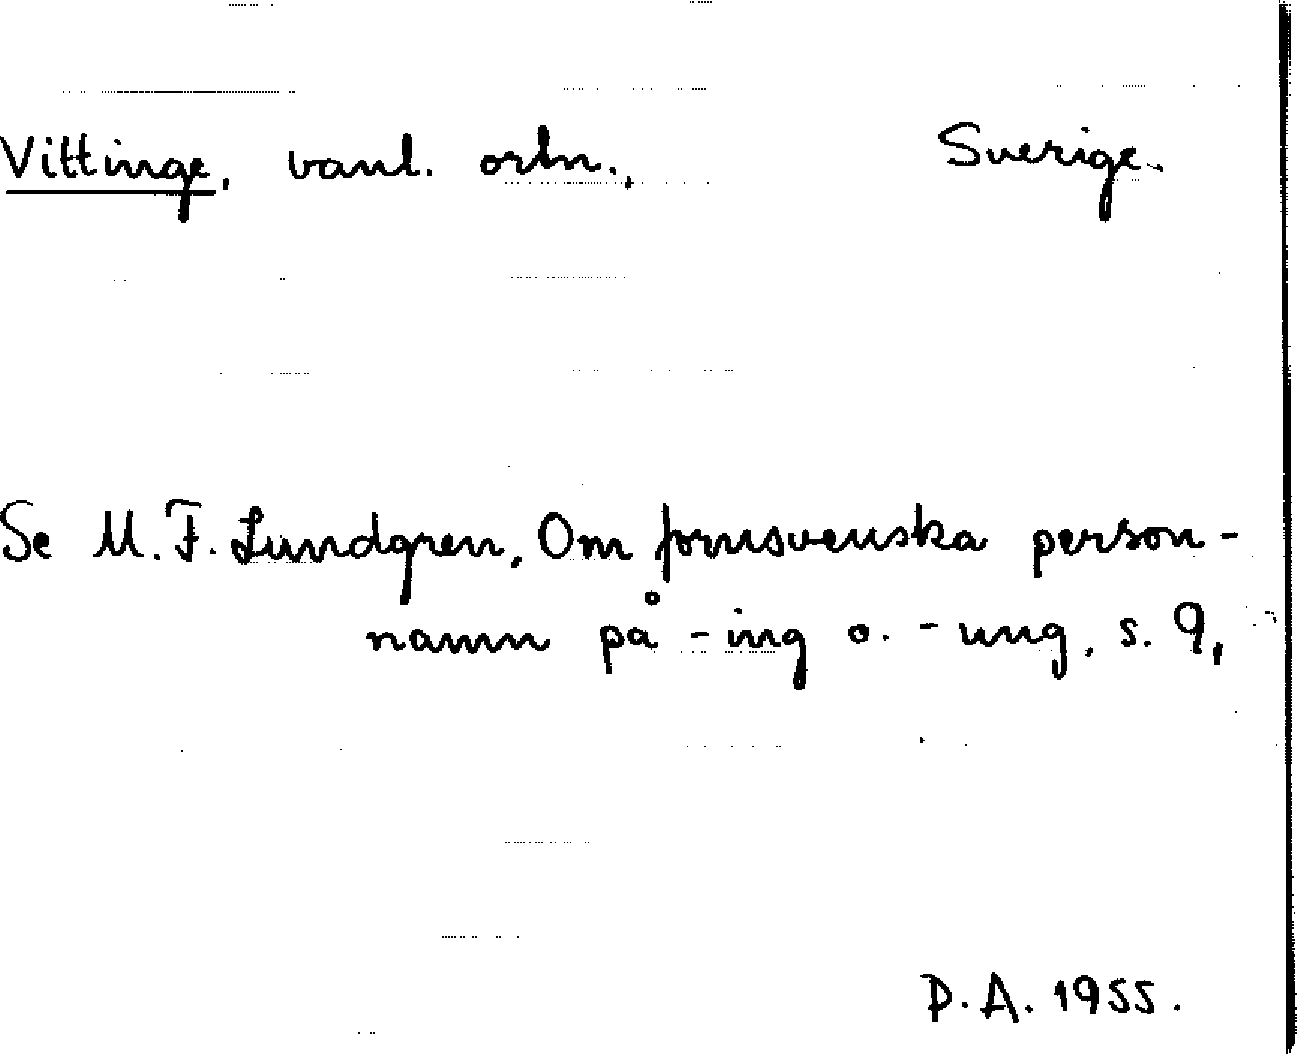 Vittinge, vanl. ortn., Sverige.
Se M. F. Lundgren, Om fornsvenska person-
namn på -ing o. -ung, s. 9,
D. A. 1955.